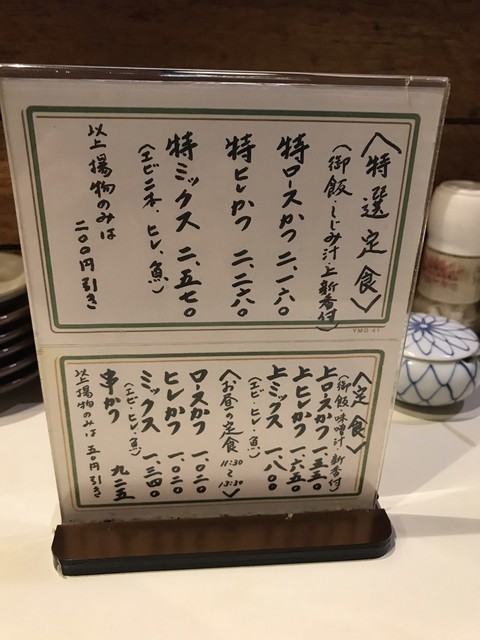 〈特選定食〉
(御飯・しじみ汁・上新香付)
特ロースかつ 二、一六〇
特ヒレかつ 二、二六〇
特ミックス 二、五七〇
(エビ二本、ヒレ、魚)
以上揚物のみは
二〇〇円引き
YMG 41
〈定食〉
(御飯・味噌汁・新香付)
上ロースかつ 一、五五〇
上ヒレかつ 一、六五〇
上ミックス 一、八〇〇
(エビ・ヒレ・魚)
〈お昼の定食 11:30〜13:30〉
ロースかつ 一、〇二〇
ヒレかつ 一、〇二〇
ミックス 一、三四〇
(エビ、ヒレ、魚)
串かつ 九二五
以上揚物のみは 五〇円引き